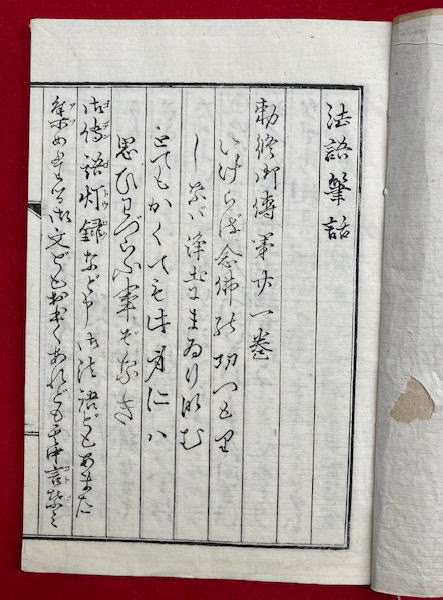 法語筆話
勅修御傳第廿一巻
いけらば念佛の功つもり
しなば浄土にまゐりなむ
とてもかくても此身には
思ひわづらふ事ぞなき
御傳語灯録など申御法語どもあまた
集めたまへる御文どもおほくあれども